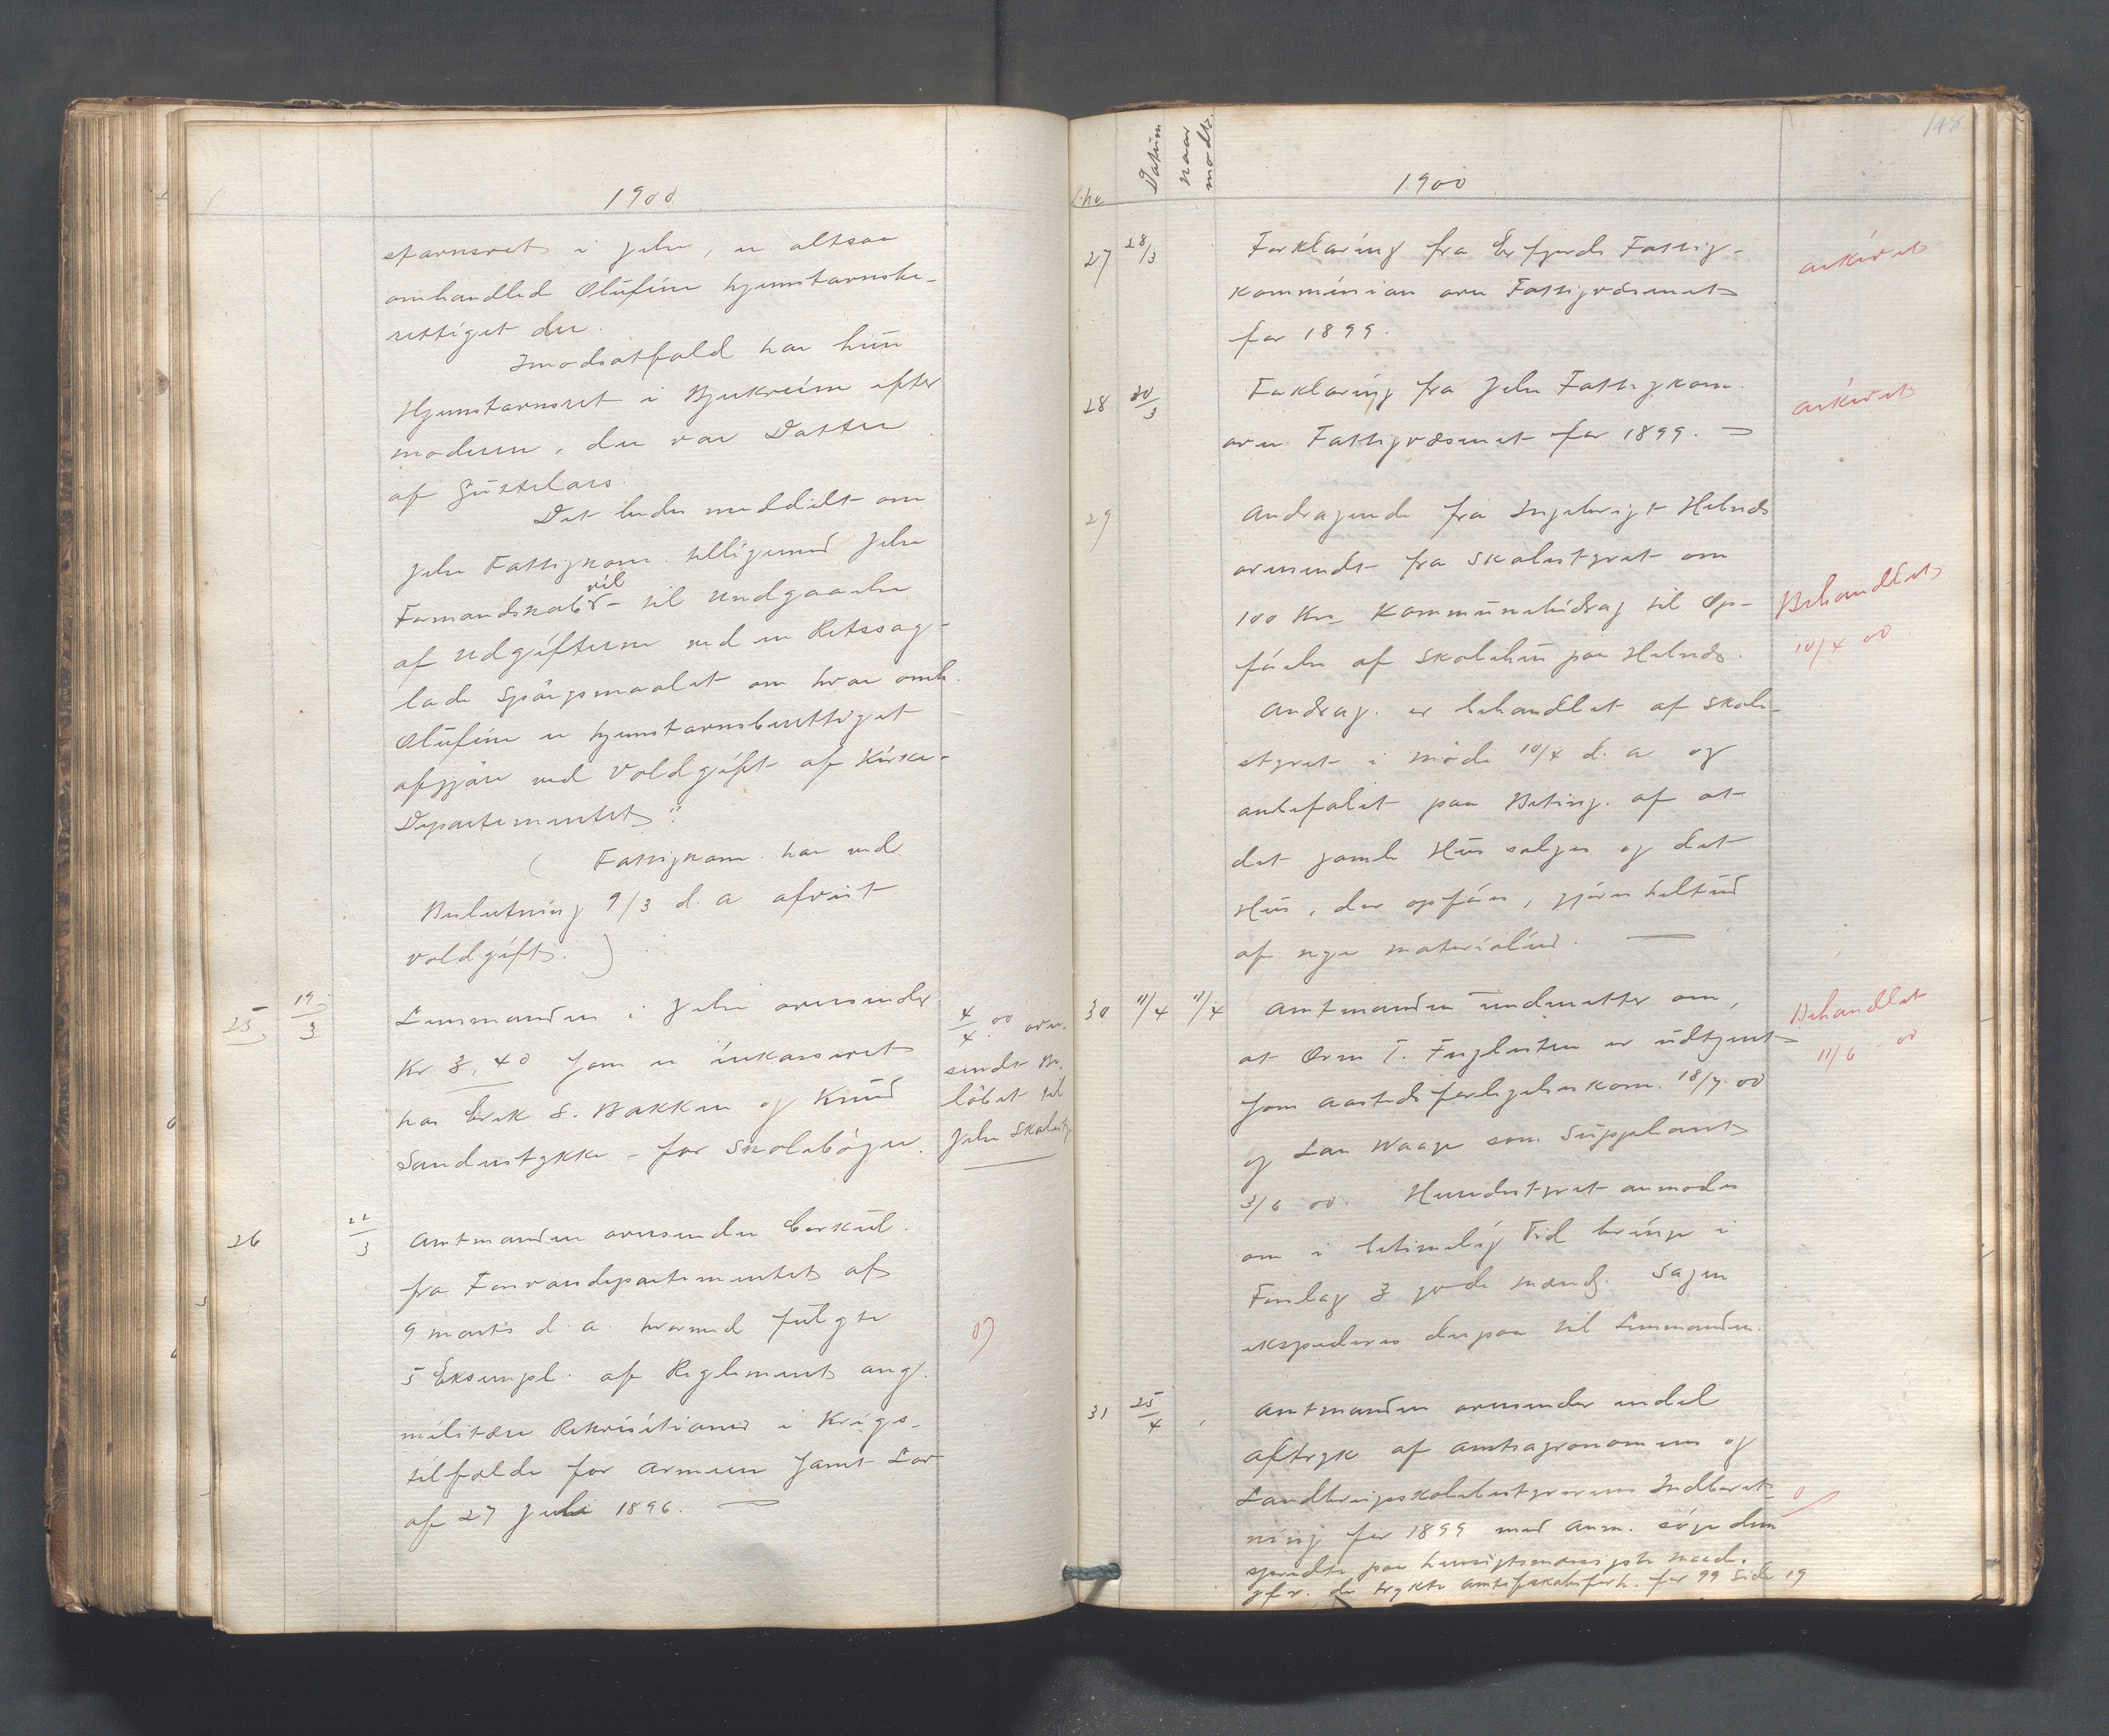 1900.
stavnsret i Jelse, er altsaa
omhandled Olufine hjemstavnsbe-
rettiget der.
Imodsatfald har hun
Hjemstavnsret i Bjerkreim efter
moderen, der var Datter
af
Det bedes meddelt om
Jelse Fattigkom. tilligemed Jelse
Formandskab vil - til Undgaaelse
af Udgifterne ved en Retssag -
lade Spörgsmaalet om hvor omh.
Olufine er hjemstavnsberettiget
afgjöre ved Voldgift af Kirke-
Departementet"
( Fattigkom. har ved
Beslutning 9/3 d. a afvist
voldgift. )
25 19/3 Lensmanden i Jelse oversender
Kr 3,40 som er inkasseret
hos Erik S. Bakken og Knud
Sandestykke - for Skolebøger.
4/4 00 over-
sendt Be-
löbet til
Jelse Skolest.
26 22/3 Amtmanden oversender Cirkul.
fra Forsvarsdepartementet af
9 marts d. a. hvormed fulgte
5 Eksempl. af Reglement ang.
militære Rekvisitioner i Krigs-
tilfælde for armeen samt Lov
af 27 Juli 1896.
148
L.no Datum naar modt. 1900
27 28/3 Forklaring fra Erfjords Fattig-
kommission over Fattigvæsenet
for 1899.
arkivet
28 30/3 Forklaring fra Jelse Fattigkom.
over Fattigvæsenet for 1899.
arkivet
29 Andragende fra Ingebrigt Hebnes
oversendt fra Skolestyret om
100 Kr. Kommunebidrag til Op-
førelse af Skolehus paa Hebnes.
Behandlet
10/4 00
Andrag. er behandlet af Skole-
styret i møde 10/4 d. a og
anbefalet paa Beting. af at
det gamle Hus sælges og det
Hus, der opføres, gjøres heltud
af nye materialier.
30 11/4 17/4 Amtmanden underretter om,
at Orm T. Fuglesteen er udtjent
som aastedsforligelseskom. 18/7 00
og Lars Waage som Suppleant
3/6 00. Herredstyret anmodes
om i betimelig Tid bringe i
Forslag 3 gode mænd. Sagen
ekspederes derpaa til Lensmanden.
Behandlet
11/6 00
31 25/4 Amtmanden oversender endel
Aftryk af Amtsagronomens og
Landbrugsskolebestyrerens Indberet-
ning for 1899 med Anm. søge dem
spredte paa hensigtsmæssigste maade.
jfr. de trykte amtsforh. for 99 Side 19